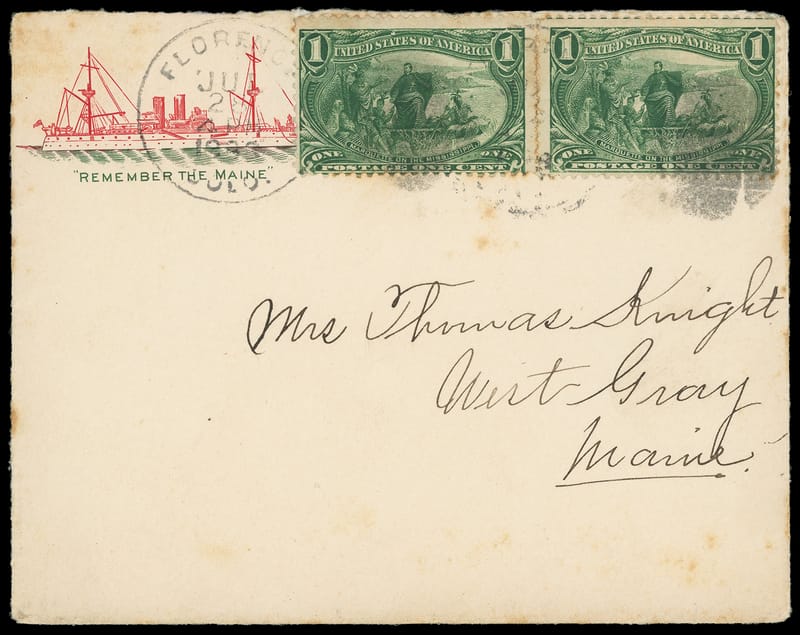 FLORENCE
JU
2
1898
COLO.
"REMEMBER THE MAINE"
1 UNITED STATES OF AMERICA 1
MARQUETTE ON THE MISSISSIPPI.
ONE ONE
POSTAGE ONE CENT
1 UNITED STATES OF AMERICA 1
MARQUETTE ON THE MISSISSIPPI.
ONE ONE
POSTAGE ONE CENT
Mrs Thomas Knight
West Gray
Maine.